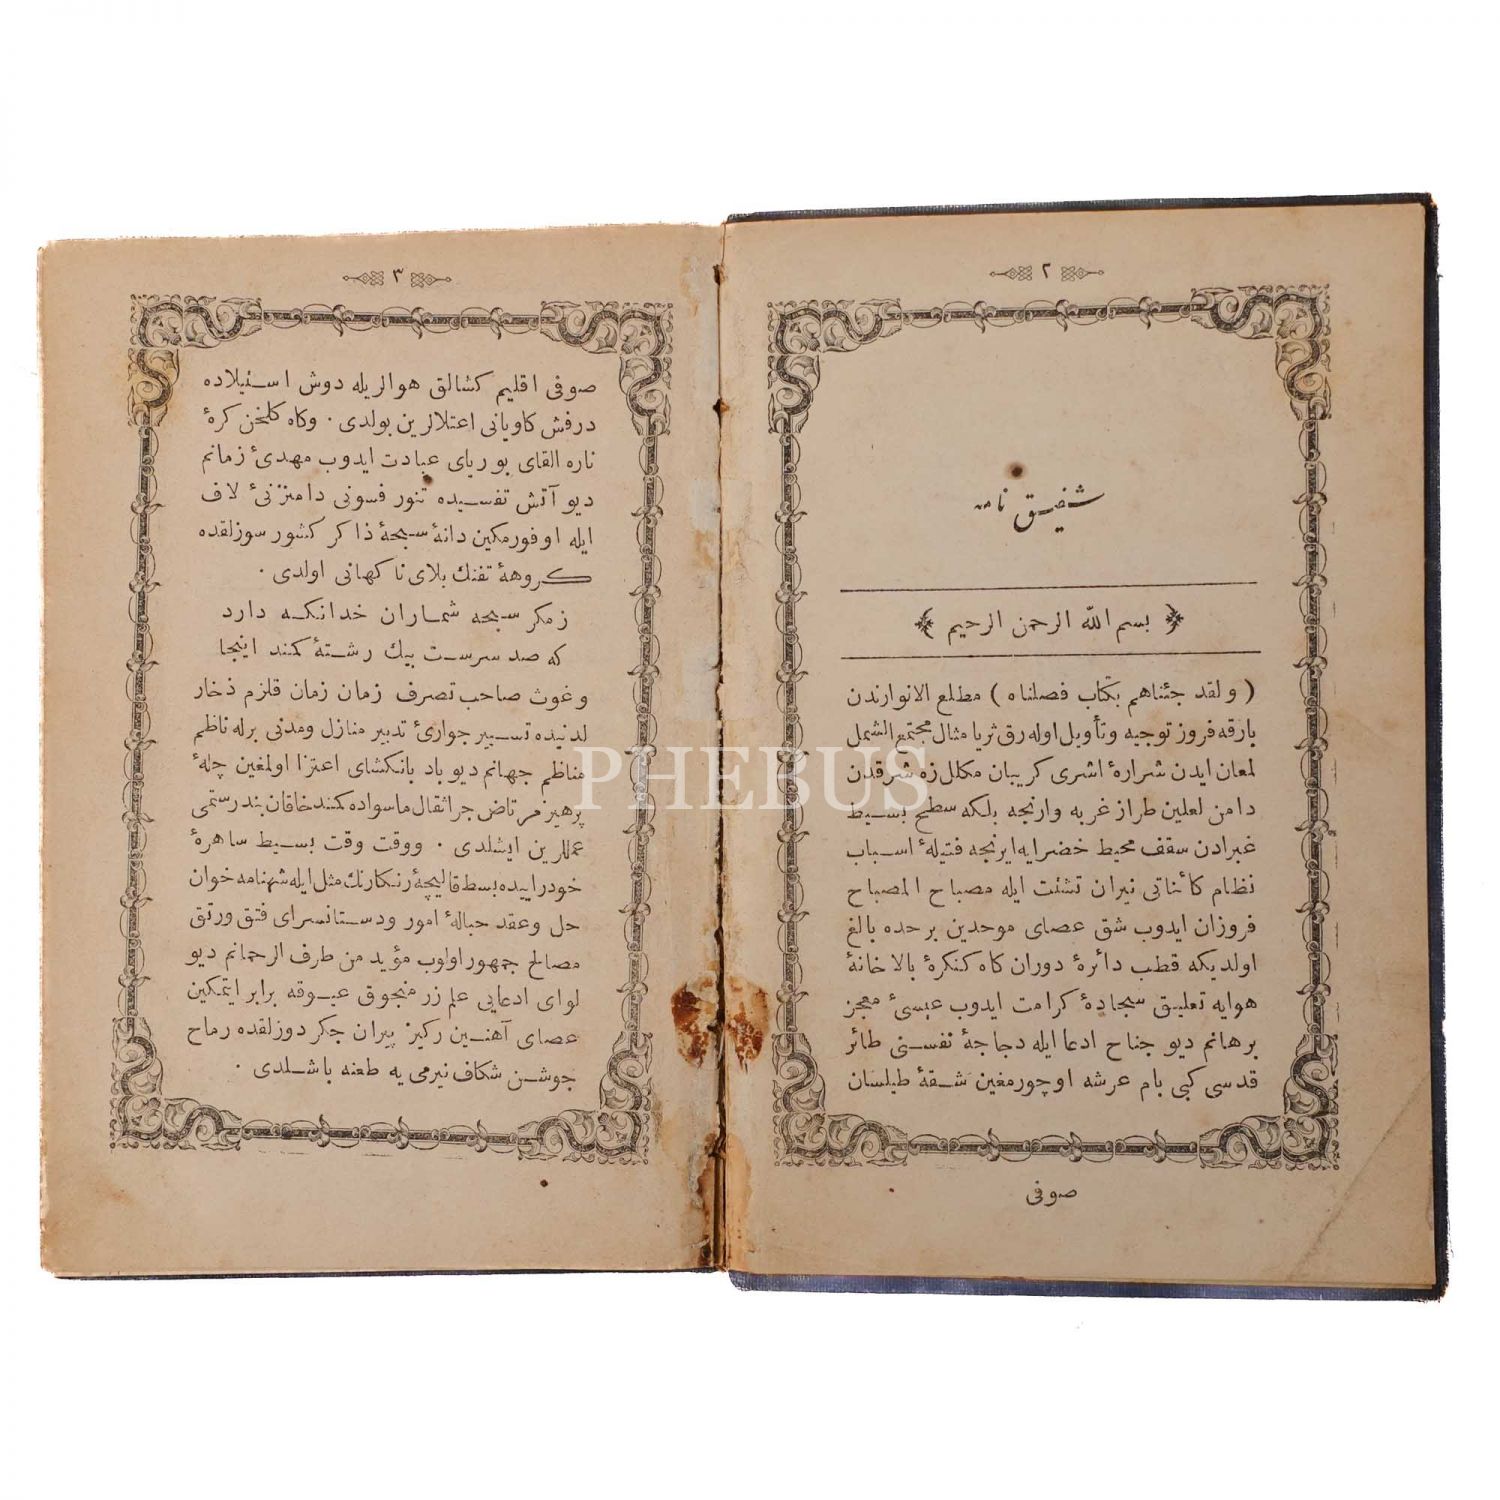 ٢
شفیق نامه
بسم الله الرحمن الرحیم
( ولقد جئناهم بكتاب فصلناه ) مطلع الانوارندن
بارقه فروز توجیه وتأویل اوله رق ثریا مثال مجتمع الشمل
لمعان ایدن شرارهٔ اشری كریبان مكلل زه شرقدن
دامن لعلین طراز غربه وارنجه بلكه سطح بسیط
غبرادن سقف محیط خضرایه ایرنجه فتیلهٔ اسباب
نظام كأناتی نیران تشتت ایله مصباح المصباح
فروزان ایدوب شق عصای موحدین برحده بالغ
اولدیكه قطب دائرهٔ دوران كاه كنكرهٔ بالاخانهٔ
هوایه تعلیق سجادهٔ كرامت ایدوب عیسیٔ معجز
برهانم دیو جناح ادعا ایله دجاجهٔ نفسنی طائر
قدسی كبی بام عرشه اوچورمغین شقهٔ طیلسان
صوفی
٣
صوفی اقلیم كشالق هوالریله دوش استیلاده
درفش كاویانی اعتلالرین بولدی ٠ وكاه كلخن كرهٔ
ناره القای بوریای عبادت ایدوب مهدیٔ زمانم
دیو آتش تفسیده تنور فسونی دامنزنیٔ لاف
ایله اوفورمكین دانهٔ سبحهٔ ذاكر كشور سوزلقده
كروههٔ تفنك بلای ناكهانی اولدی ٠
زمكر سبحه شماران خدا نكه دارد
كه صد سرست بیك رشتهٔ كمند اینجا
وغوث صاحب تصرف زمان زمان قلزم ذخار
لدنیده تسییر جواریٔ تدبیر منازل ومدنی برله ناظم
مناظم جهانم دیو باد بانكشای اعتزا اولمغین چلهٔ
پرهیز مرتاض جراثقال ماسواده كمند خاقان بند رستمی
عمللرین ایشلدی ٠ ووقت وقت بسیط ساهرهٔ
خودراییده بسط قالیچهٔ رنكارنك مثل ایله شهنامه خوان
حل وعقد حبالهٔ امور ودستانسرای فتق ورتق
مصالح جمهور اولوب مؤید من طرف الرحمانم دیو
لوای ادعایی علم زر منجوق عیوقه برابر ایتمكین
عصای آهنین ركیز پیران جكر دوزلقده رماح
جوشن شكاف نیرمی یه طعنه باشلدی ٠
PHEBUS